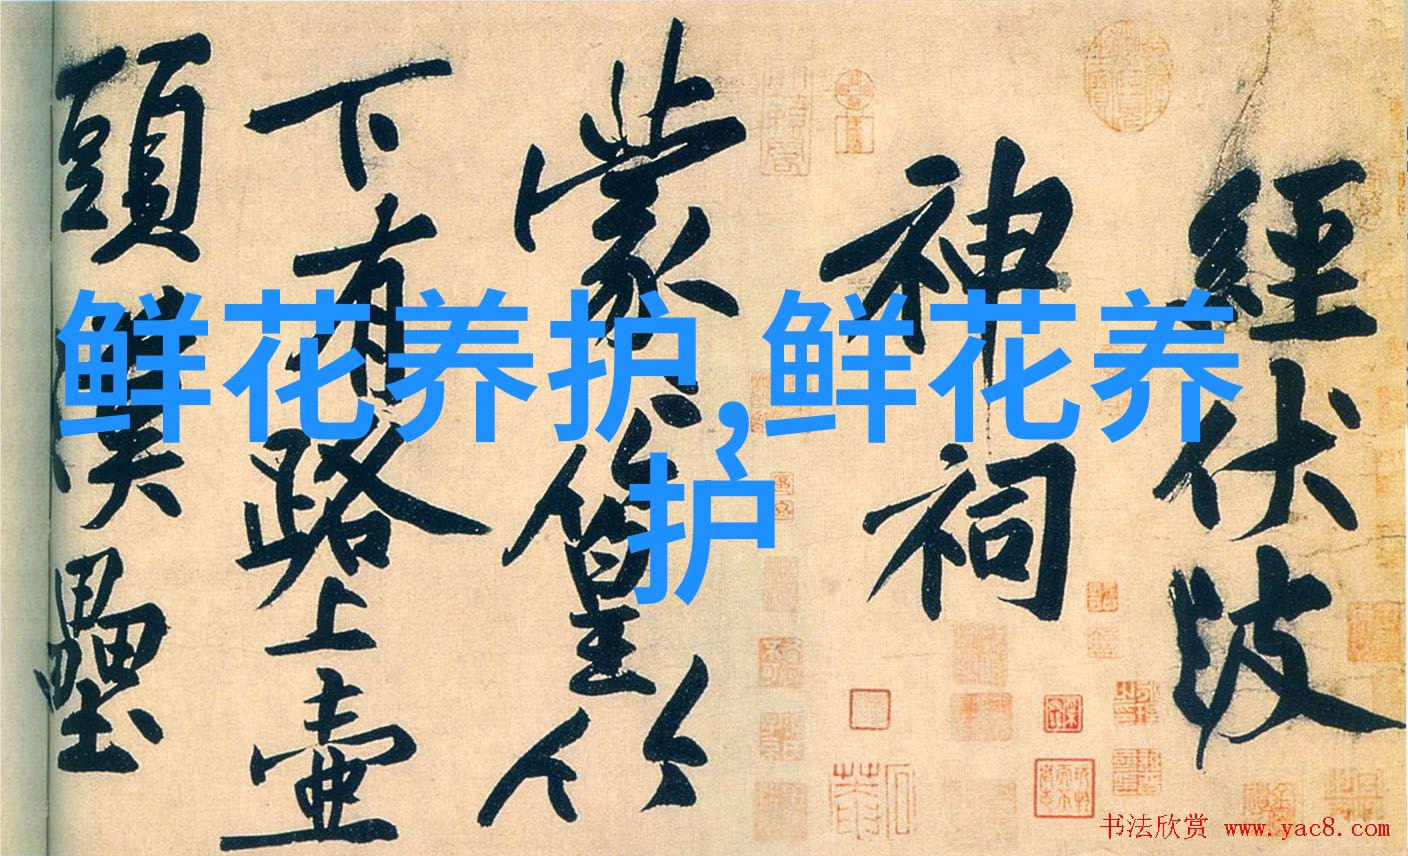 經伏波
神祠
蒙篁竹
下有路上壺
頭漢壘
鲜花养护,鲜花养
护
书法欣赏 www.yac8.com